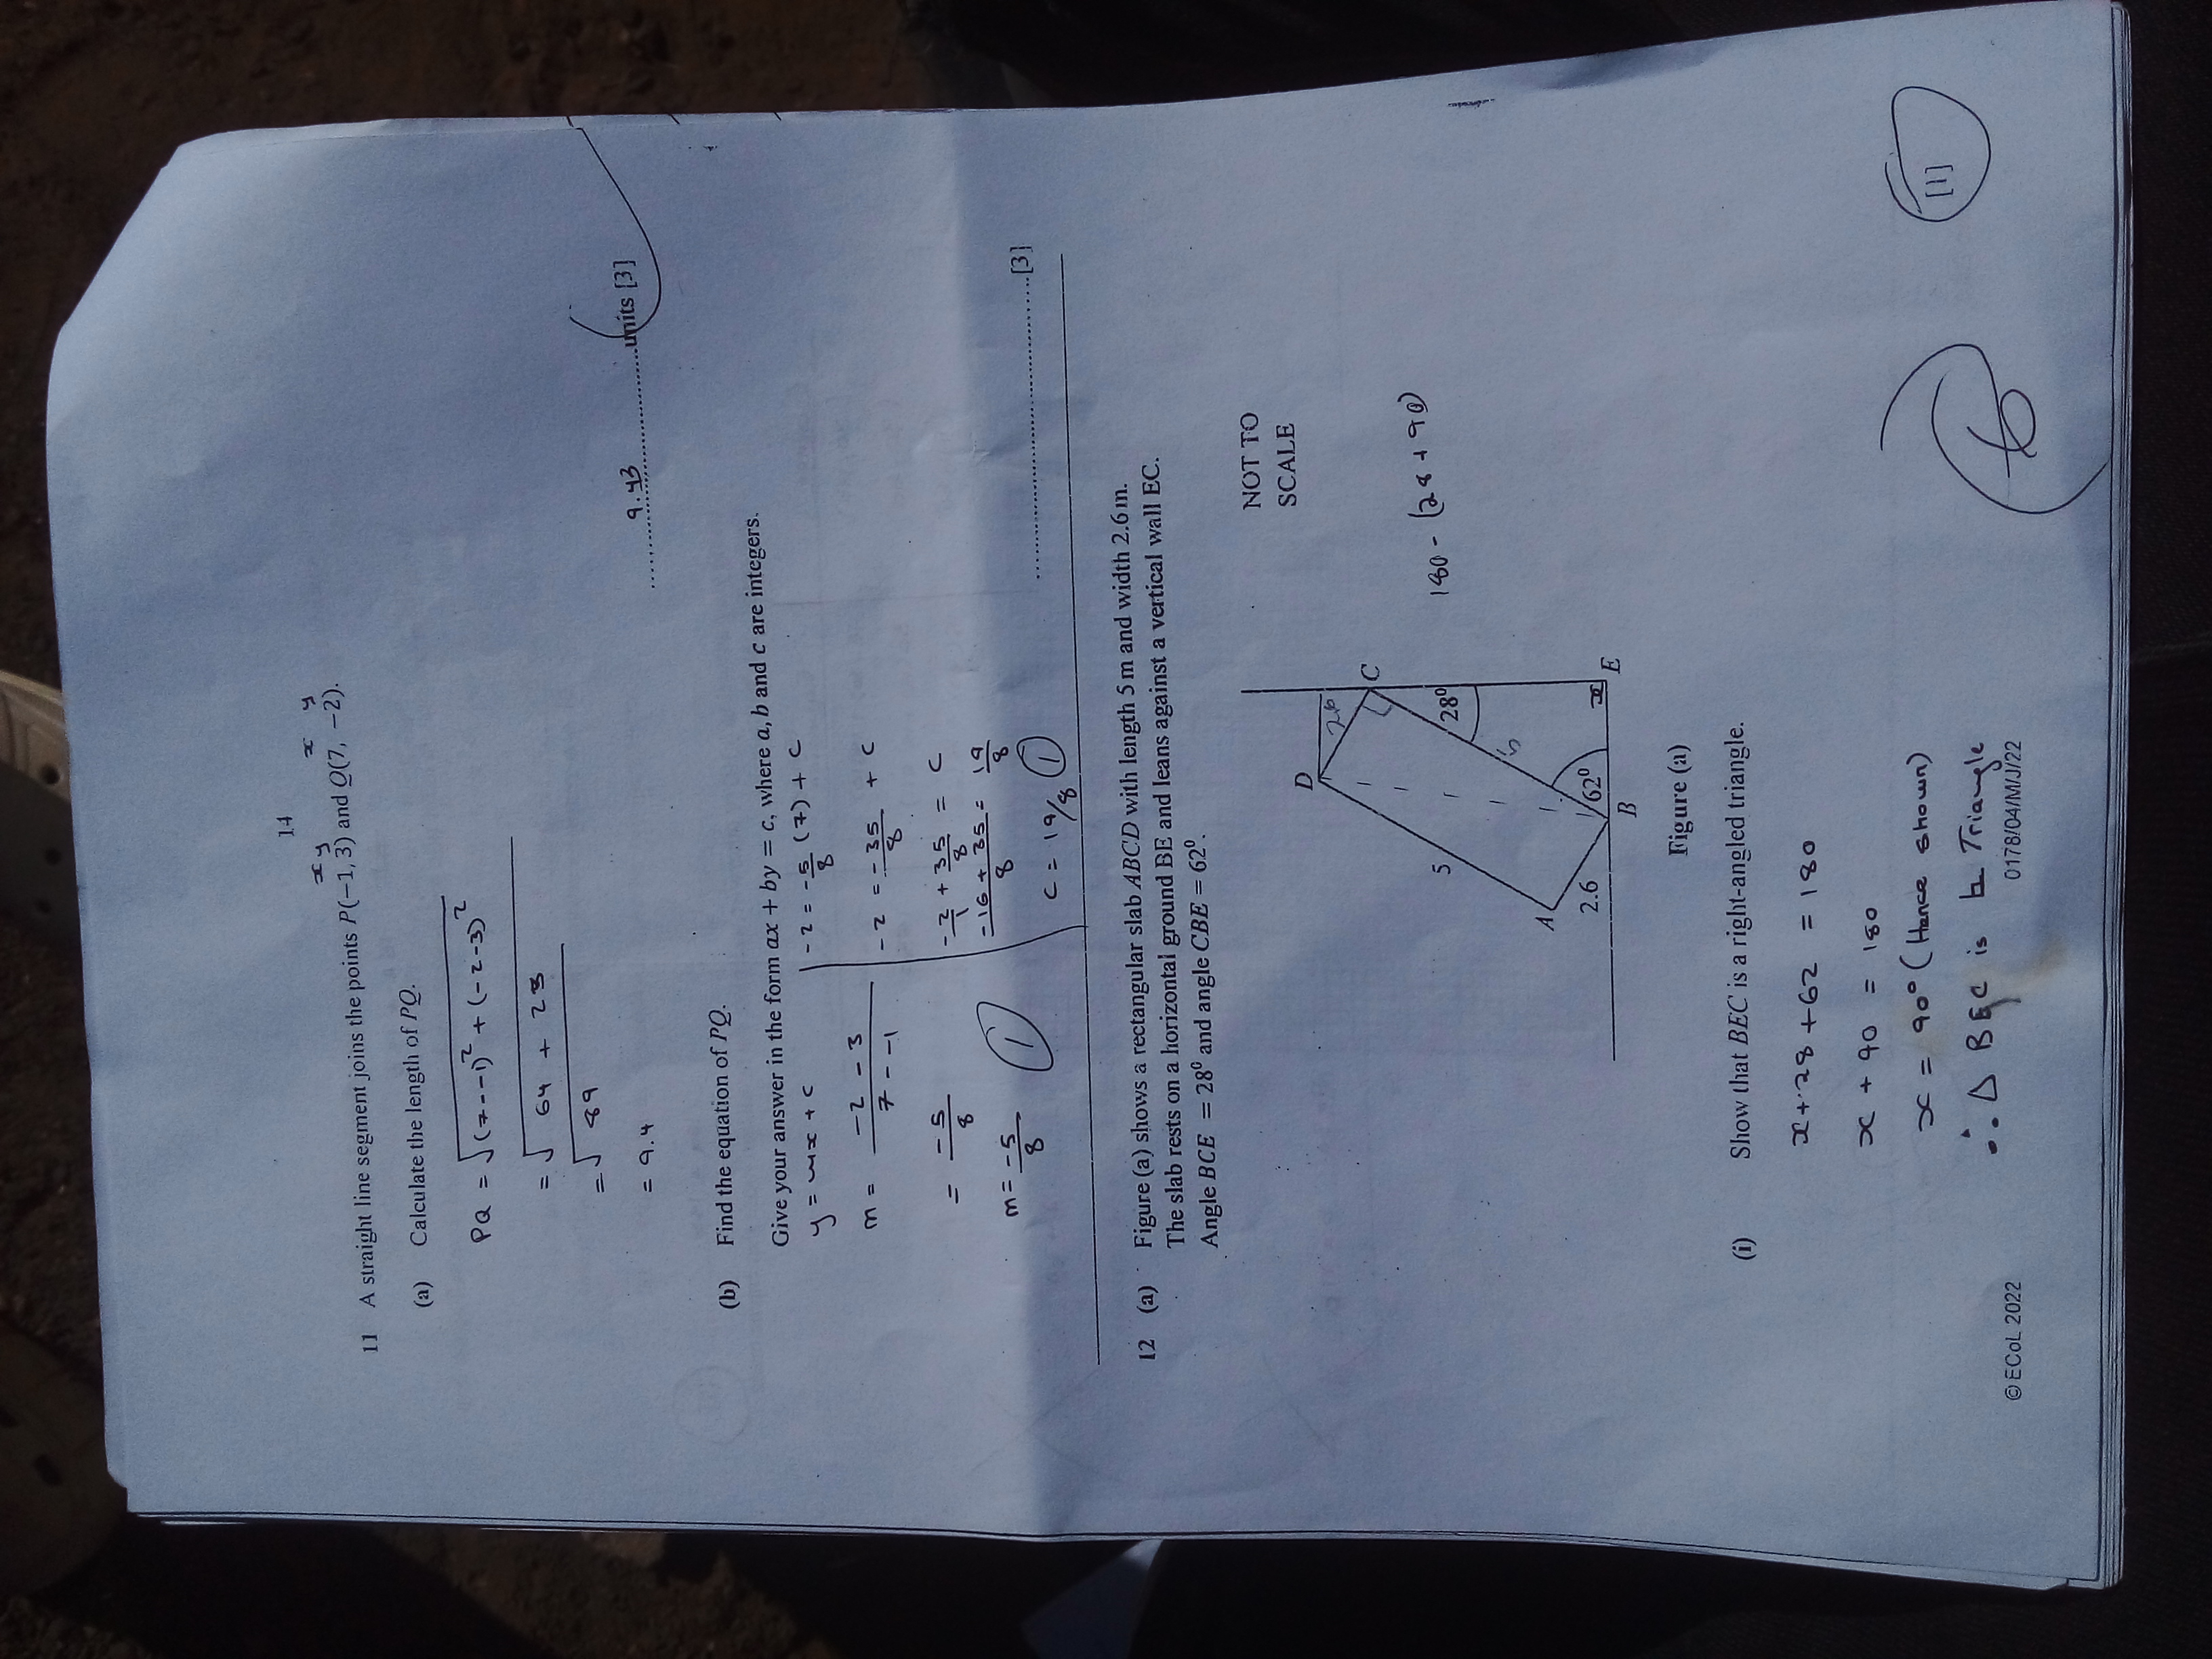 14
x y x y
11 A straight line segment joins the points P(−1, 3) and Q(7, −2).
(a) Calculate the length of PQ.
PQ = √(7--1)² + (-2-3)²
= √64 + 25
= √89
= 9.4
9.43 units [3]
(b) Find the equation of PQ.
Give your answer in the form ax + by = c, where a, b and c are integers.
y = mx + c
m = -2 - 3 / 7 - -1
= -5/8
m = -5/8 1
-2 = -5/8 (7) + c
-2 = -35/8 + c
-2/1 + 35/8 = c
-16 + 35 / 8 = 19/8
c = 19/8 1
[3]
12 (a) Figure (a) shows a rectangular slab ABCD with length 5 m and width 2.6 m.
The slab rests on a horizontal ground BE and leans against a vertical wall EC.
Angle BCE = 28⁰ and angle CBE = 62⁰.
NOT TO
SCALE
D
2.6
C
180 - (28 + 90)
5
28⁰
5
A
2.6
62⁰
x
E
B
Figure (a)
(i) Show that BEC is a right-angled triangle.
x + 28 + 62 = 180
x + 90 = 180
x = 90° (Hence shown)
[1]
∴ Δ BEC is ⊾ Triangle
6
© ECoL 2022 0178/04/M/J/22